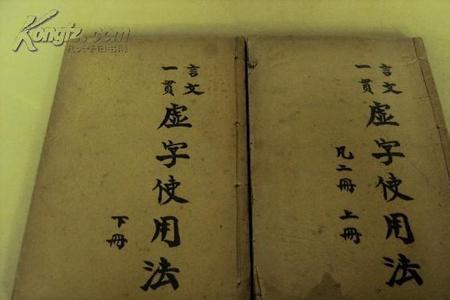 Kongfz.com
孔夫子旧书网
言文
一貫
虛字使用法
凡二冊 上冊
言文
一貫
虛字使用法
下冊